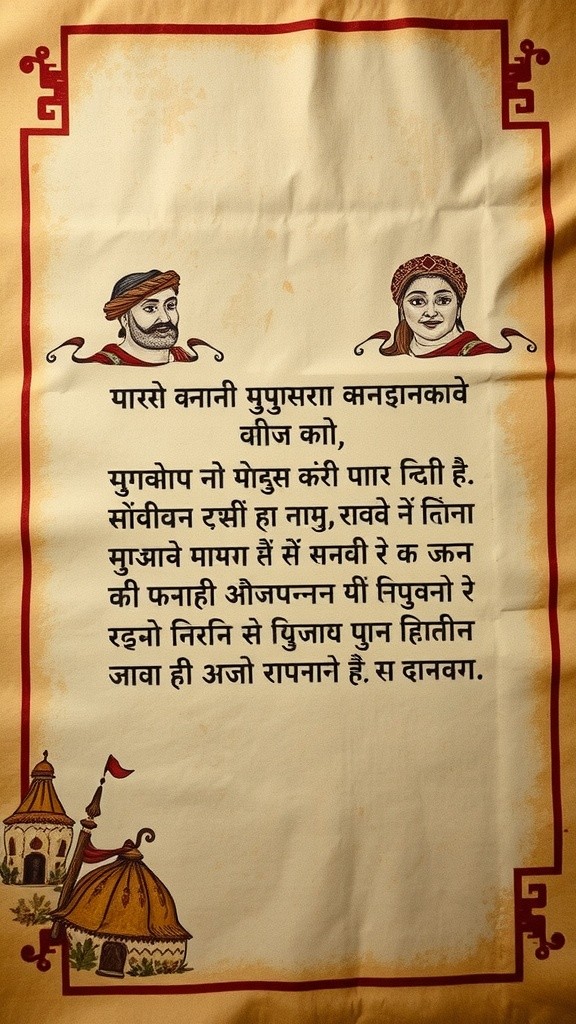 पारसे वनानी मुपुसरा कनइानकावे
कीज काो,
मुगकोप नो मोदुस करी पार दिी है.
सोंवीवन रसीं हा नामु, राववे नें तिना
मुाआवे मायग हैं सें सनवी रे क जन
की फनाही औजपन्नन यीं निपुवनो रे
रइनो निरनि से युिजाय पुान हितीन
जावा ही अजो रापनाने है. स दानवग.